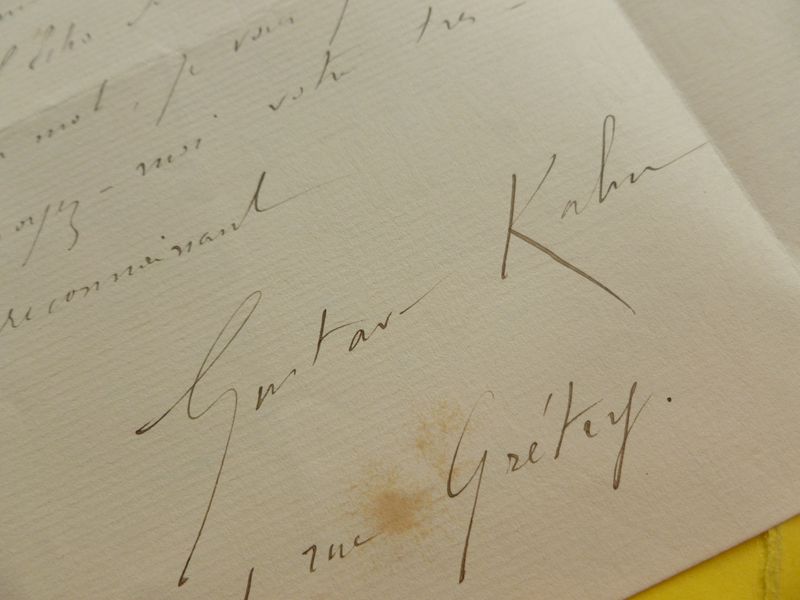 l'Echo
mot, je vous
voyez-moi votre très-
reconnaissant
Gustav Kahn
rue Grétry.